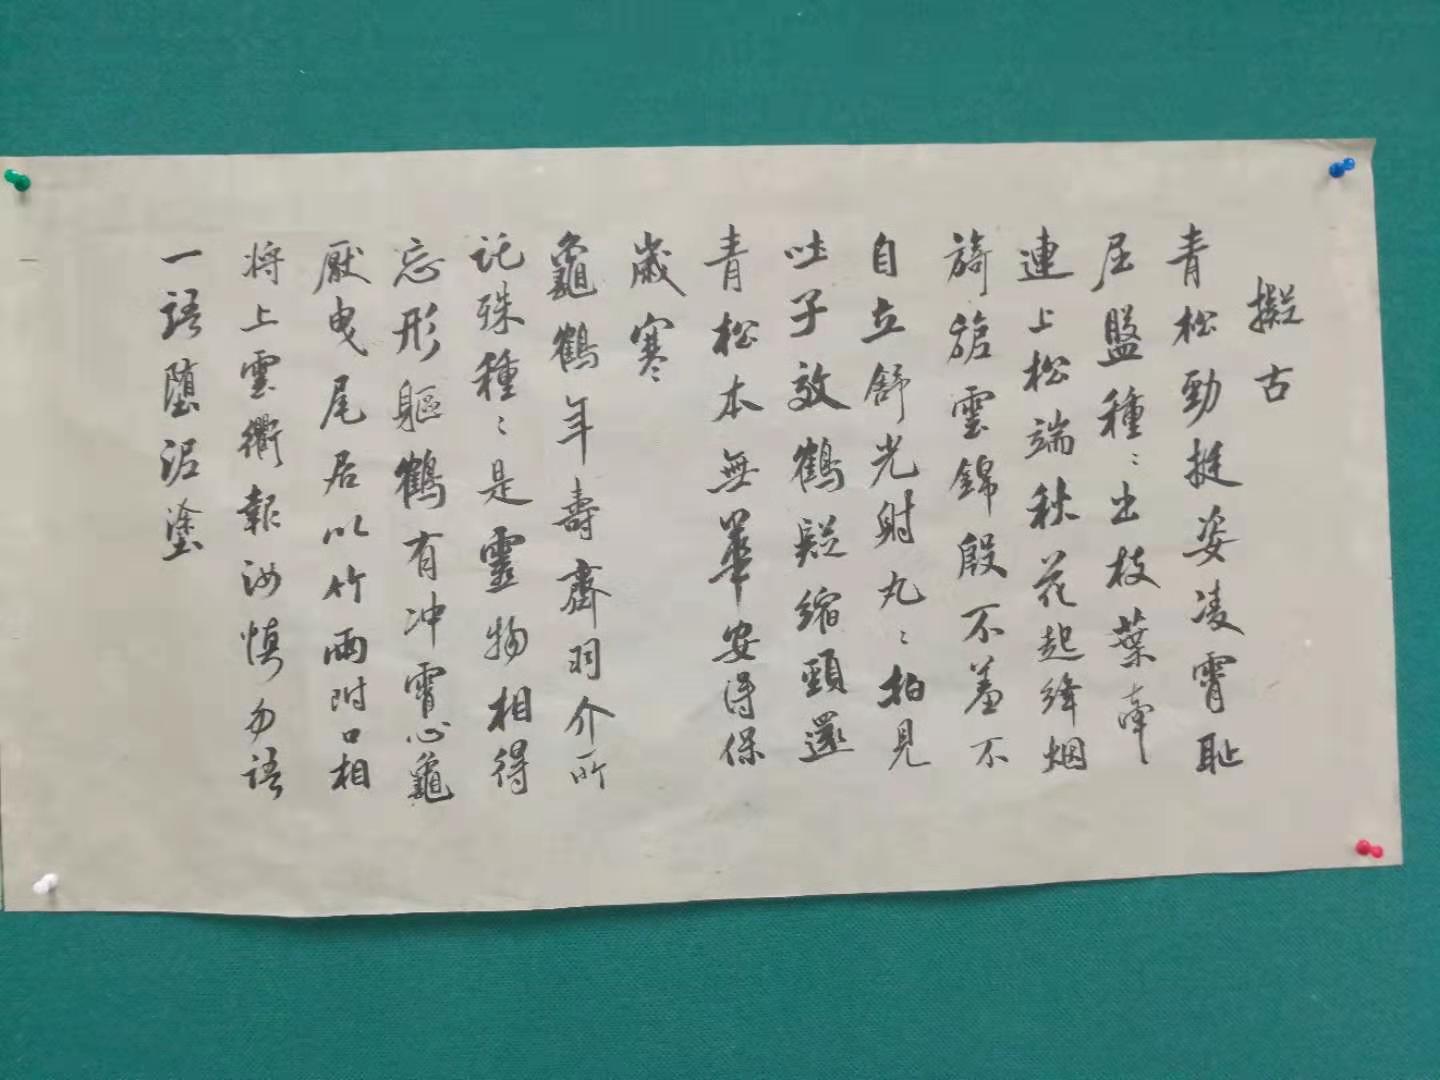 擬古
青松勁挺姿凌霄恥
屈盤種〻出枝葉牽
連上松端秋花起絳烟
旖旎雲錦殷不羞不
自立舒光射丸〻柏見
吐子效鶴疑縮頸還
青松本無華安得保
歲寒〻
龜鶴年壽齊羽介所
託殊種〻是靈物相得
忘形軀鶴有冲霄心龜
厭曳尾居以竹兩附口相
將上雲衢報汝慎勿語
一語墮泥塗